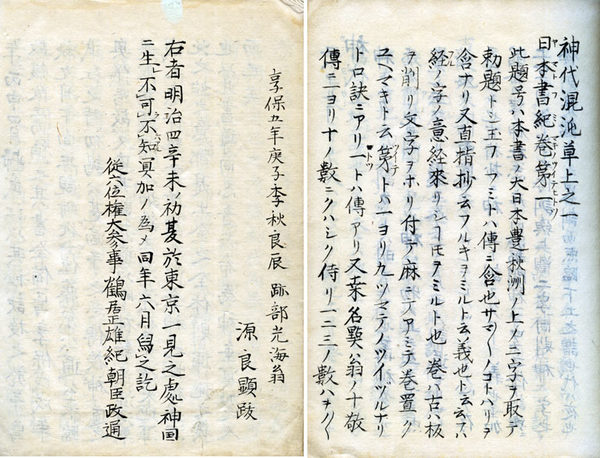 神代混沌草上之一
日本書紀巻第一
此題号ハ本書ノ大日本豊秋洲ノ上ノ二字ヲ取テ
勅題トシ玉フフミトハ傳ニ含也サマ〱ノコトハリヲ
含ナリ又直指抄云フルキヲミルト云義也ト云フハ
経ノ字ノ意経來リシコトヲミルト也巻ハ古ハ板
ヲ削リ文字ヲホリ付テ麻ニテアミテ巻置ク
ユヘマキト云第トハ一ヨリ九ツマテノツイヅルナリ
ト口訣ニアリ一トハ傳アリ又桒名翁ノ十敬
傳ニ一ヨリ十ノ數ニクハシク侍リ一二三ノ數ハ
享保五年庚子季秋良辰 跡部光海翁
源良顕
右者明治四辛未ノ初夏於東京一見之處神国
ニ生レ不可不知冥加ノ為メ同年六月写之訖
従六位権大参事鶴居正雄紀朝臣政通